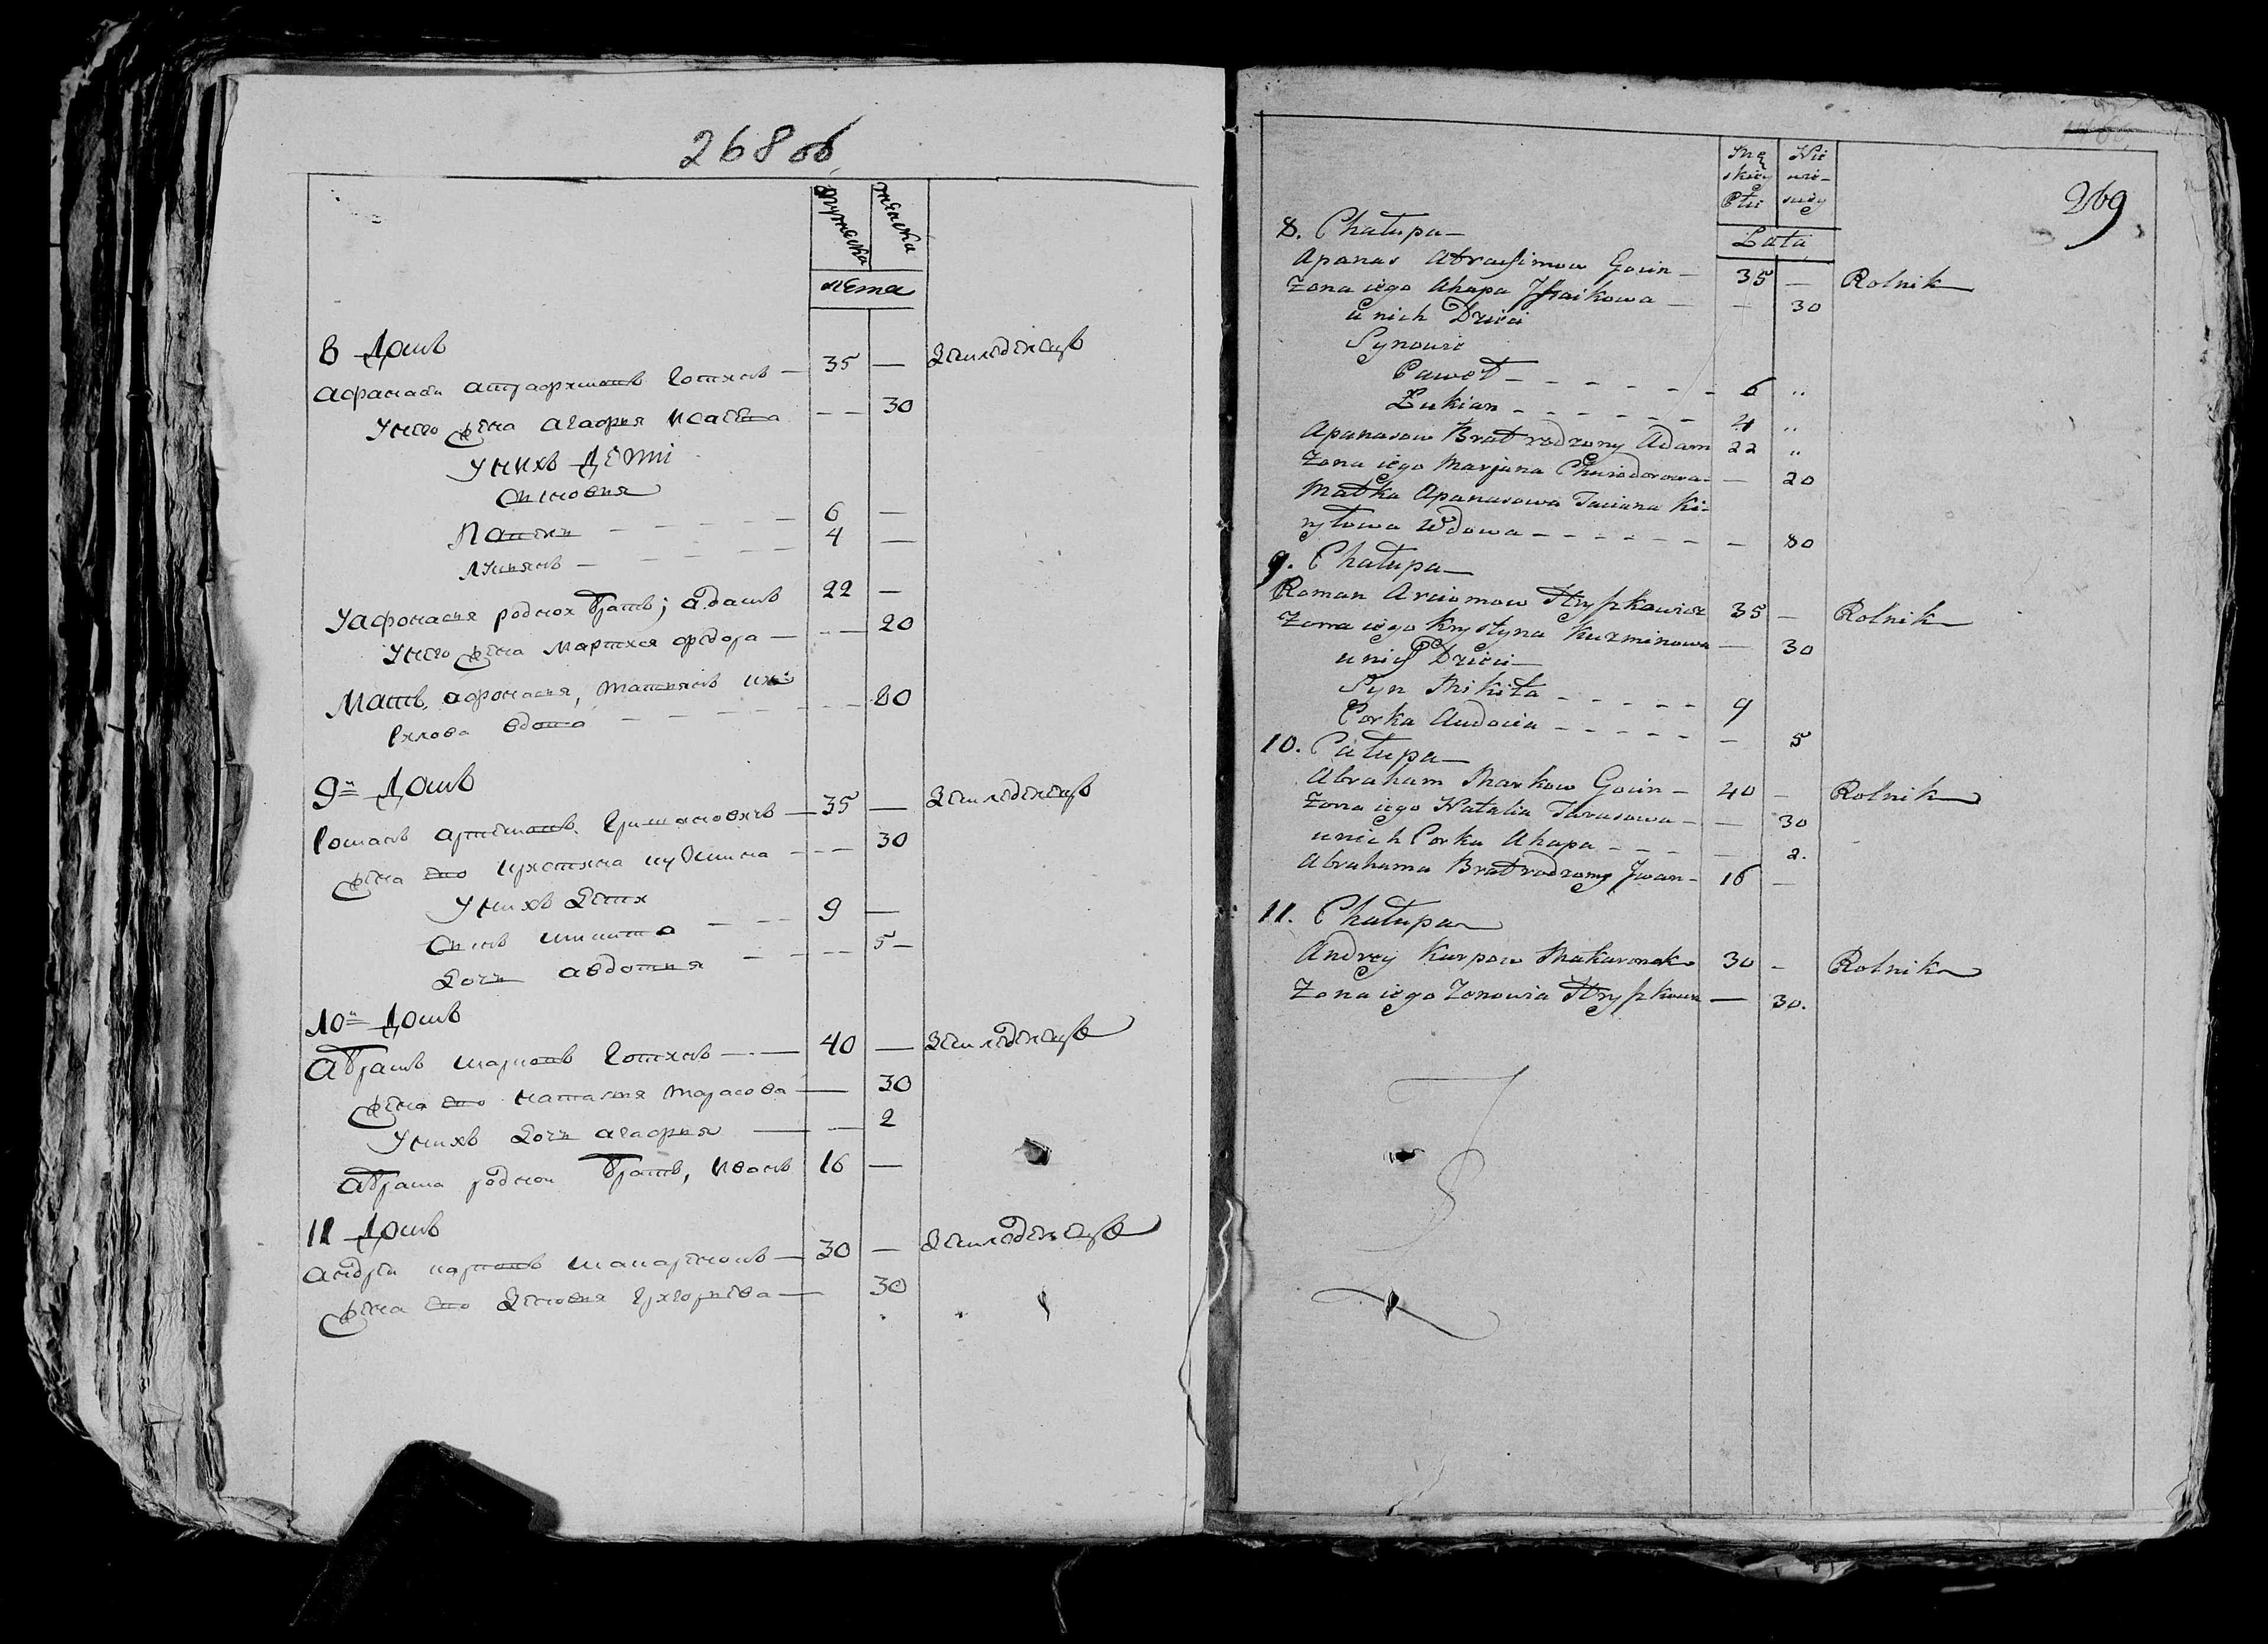 268 об
мужеска
женска
лета
8 Домъ
Афанасеи Астафимовъ Готинъ — 35 — Земледелецъ
У него жена Агафия Исаева — — 30
У нихъ Дети
Сыновия
Павелъ — — — — — 6 —
Лукянъ — — — — — 4 —
У Афонасия родной Братъ; Адамъ 22 —
У него жена Мартися Федора — — — 20
Матъ Афонасия, Татиянъ Ки-
рилова вдова — — — — — — — 80
9й Домъ
Романъ Артемовъ — 35 — Земледелецъ
Жена его Кристина Кузмина — — — 30
У нихъ Дети
Сынъ Никита — — — 9 —
Дочь Авдотия — — — — 5 —
10й Домъ
Абрамъ Марковъ Готинъ — — 40 — Земледелецъ
Жена его Наталия Тарасова — 30
У нихъ Дочь Агафия — — 2
Абрама родной Братъ, Иванъ 16 —
11 Домъ
Андреи Карповъ — 30 — Земледелецъ
Жена его Зеновия Григориева — 30
269
Mę
skiey
Płci
Nie
wie-
sciey
Lata
8. Chałupa —
Apanas Gocin — 35 — Rolnik
Żona iego Ahapa Jsaikowa — — 30
u nich Dzieci
Synowie
Paweł — — — — — — 6 "
Łukian — — — — — — 4 "
Apanasow Brat rodzony Adam 22 "
Żona iego Marjana Chwiodorowa — — 20
Matka Apanasowa Taciana Ki-
ryłowa Wdowa — — — — — — — 80
9. Chałupa —
Roman Arciomow Hryszkowicz 35 — Rolnik
Żona iego Krystyna Kuzminowa — 30
u nich Dzieci —
Syn Mikita — — — — — 9
Corka Audocia — — — — — — 5
10. Całupa —
Abraham Markow Gocin — 40 — Rolnik
Żona iego Natalia Tarasowa — — 30
u nich Corka Ahapa — — — — 2.
Abrahama Brat rodzony Jwan — 16 —
11. Chałupa
Andrey Karpow Makaronek 30 — Rolnik
Żona iego Zonowia Hryszkowa — 30.